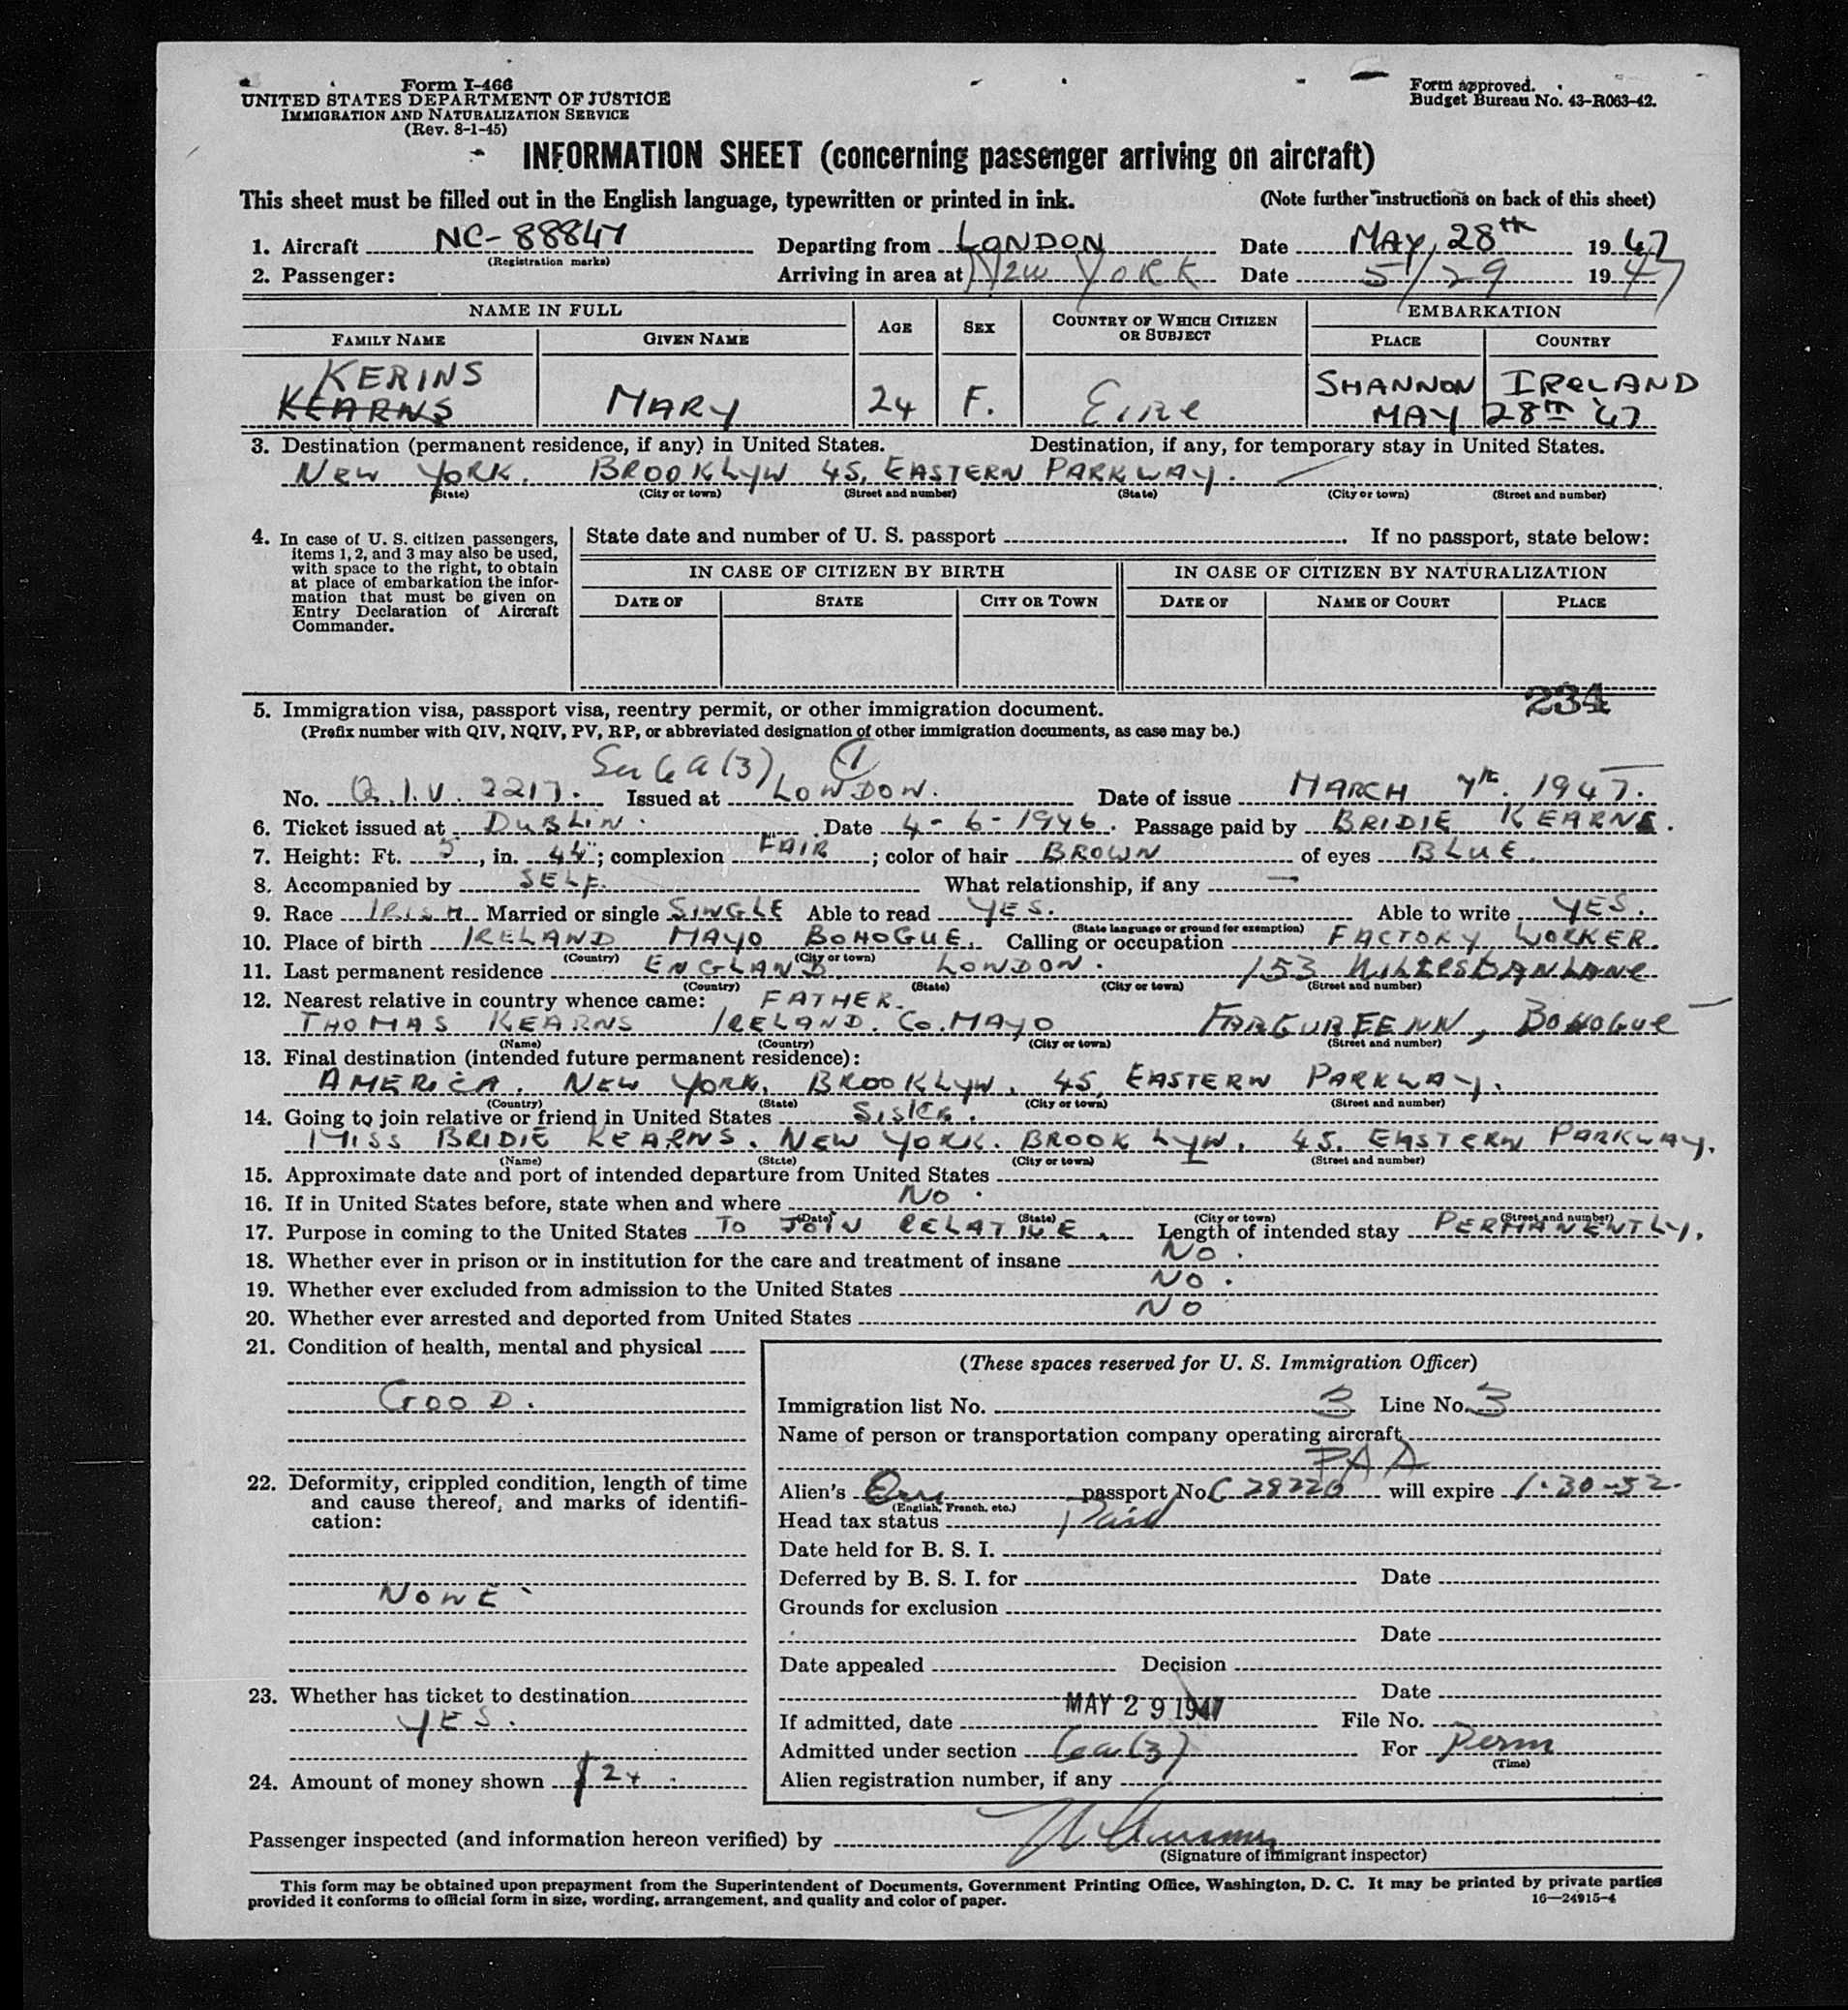 Form I-466
UNITED STATES DEPARTMENT OF JUSTICE
IMMIGRATION AND NATURALIZATION SERVICE
(Rev. 8-1-45)
Form approved.
Budget Bureau No. 43-R063-42.
INFORMATION SHEET (concerning passenger arriving on aircraft)
This sheet must be filled out in the English language, typewritten or printed in ink. (Note further instructions on back of this sheet)
1. Aircraft NC-88847 Departing from LONDON Date MAY, 28th 1947
(Registration marks)
2. Passenger: Arriving in area at New York Date 5/29 1947
NAME IN FULL AGE SEX COUNTRY OF WHICH CITIZEN OR SUBJECT EMBARKATION
FAMILY NAME GIVEN NAME PLACE COUNTRY
KERINS SHANNON IRELAND
KEARNS MARY 24 F. Eire MAY 28TH '47
3. Destination (permanent residence, if any) in United States. Destination, if any, for temporary stay in United States.
NEW YORK. BROOKLYN 45, EASTERN PARKWAY. —
(State) (City or town) (Street and number) (State) (City or town) (Street and number)
4. In case of U. S. citizen passengers, items 1, 2, and 3 may also be used, with space to the right, to obtain at place of embarkation the information that must be given on Entry Declaration of Aircraft Commander.
State date and number of U. S. passport If no passport, state below:
IN CASE OF CITIZEN BY BIRTH IN CASE OF CITIZEN BY NATURALIZATION
DATE OF STATE CITY OR TOWN DATE OF NAME OF COURT PLACE
234
5. Immigration visa, passport visa, reentry permit, or other immigration document.
(Prefix number with QIV, NQIV, PV, RP, or abbreviated designation of other immigration documents, as case may be.)
Sec 6a(3) 1
No. Q.I.V. 2217. Issued at LONDON. Date of issue MARCH 7th. 1947.
6. Ticket issued at DUBLIN. Date 4-6-1946. Passage paid by BRIDIE KEARNS.
7. Height: Ft. 5, in. 4½"; complexion FAIR; color of hair BROWN of eyes BLUE.
8. Accompanied by SELF. What relationship, if any —
9. Race IRISH Married or single SINGLE Able to read YES. Able to write YES.
(State language or ground for exemption)
10. Place of birth IRELAND MAYO BOHOGUE. Calling or occupation FACTORY WORKER.
(Country) (City or town)
11. Last permanent residence ENGLAND LONDON. 153 LANE
(Country) (State) (City or town) (Street and number)
12. Nearest relative in country whence came: FATHER.
THOMAS KEARNS IRELAND. CO. MAYO BOHOGUE
(Name) (Country) (City or town) (Street and number)
13. Final destination (intended future permanent residence):
AMERICA. NEW YORK, BROOKLYN, 45, EASTERN PARKWAY.
(Country) (State) (City or town) (Street and number)
14. Going to join relative or friend in United States SISTER.
MISS BRIDIE KEARNS. NEW YORK. BROOKLYN. 45. EASTERN PARKWAY.
(Name) (State) (City or town) (Street and number)
15. Approximate date and port of intended departure from United States
16. If in United States before, state when and where No.
(Date) (State) (City or town) (Street and number)
17. Purpose in coming to the United States TO JOIN RELATIVE. Length of intended stay PERMANENTLY.
18. Whether ever in prison or in institution for the care and treatment of insane NO.
19. Whether ever excluded from admission to the United States NO.
20. Whether ever arrested and deported from United States NO
21. Condition of health, mental and physical
GOOD.
22. Deformity, crippled condition, length of time and cause thereof, and marks of identification:
NONE
23. Whether has ticket to destination
YES.
24. Amount of money shown $24.
(These spaces reserved for U. S. Immigration Officer)
Immigration list No. 3 Line No. 3
Name of person or transportation company operating aircraft
PAA
Alien's passport No. C 28220 will expire 1-30-52.
(English, French, etc.)
Head tax status Paid
Date held for B. S. I.
Deferred by B. S. I. for Date
Grounds for exclusion
Date
Date appealed Decision
Date
If admitted, date MAY 29 1947 File No.
Admitted under section 6a(3) For Perm
(Time)
Alien registration number, if any
Passenger inspected (and information hereon verified) by
(Signature of immigrant inspector)
This form may be obtained upon prepayment from the Superintendent of Documents, Government Printing Office, Washington, D. C. It may be printed by private parties
provided it conforms to official form in size, wording, arrangement, and quality and color of paper. 16—24915-4